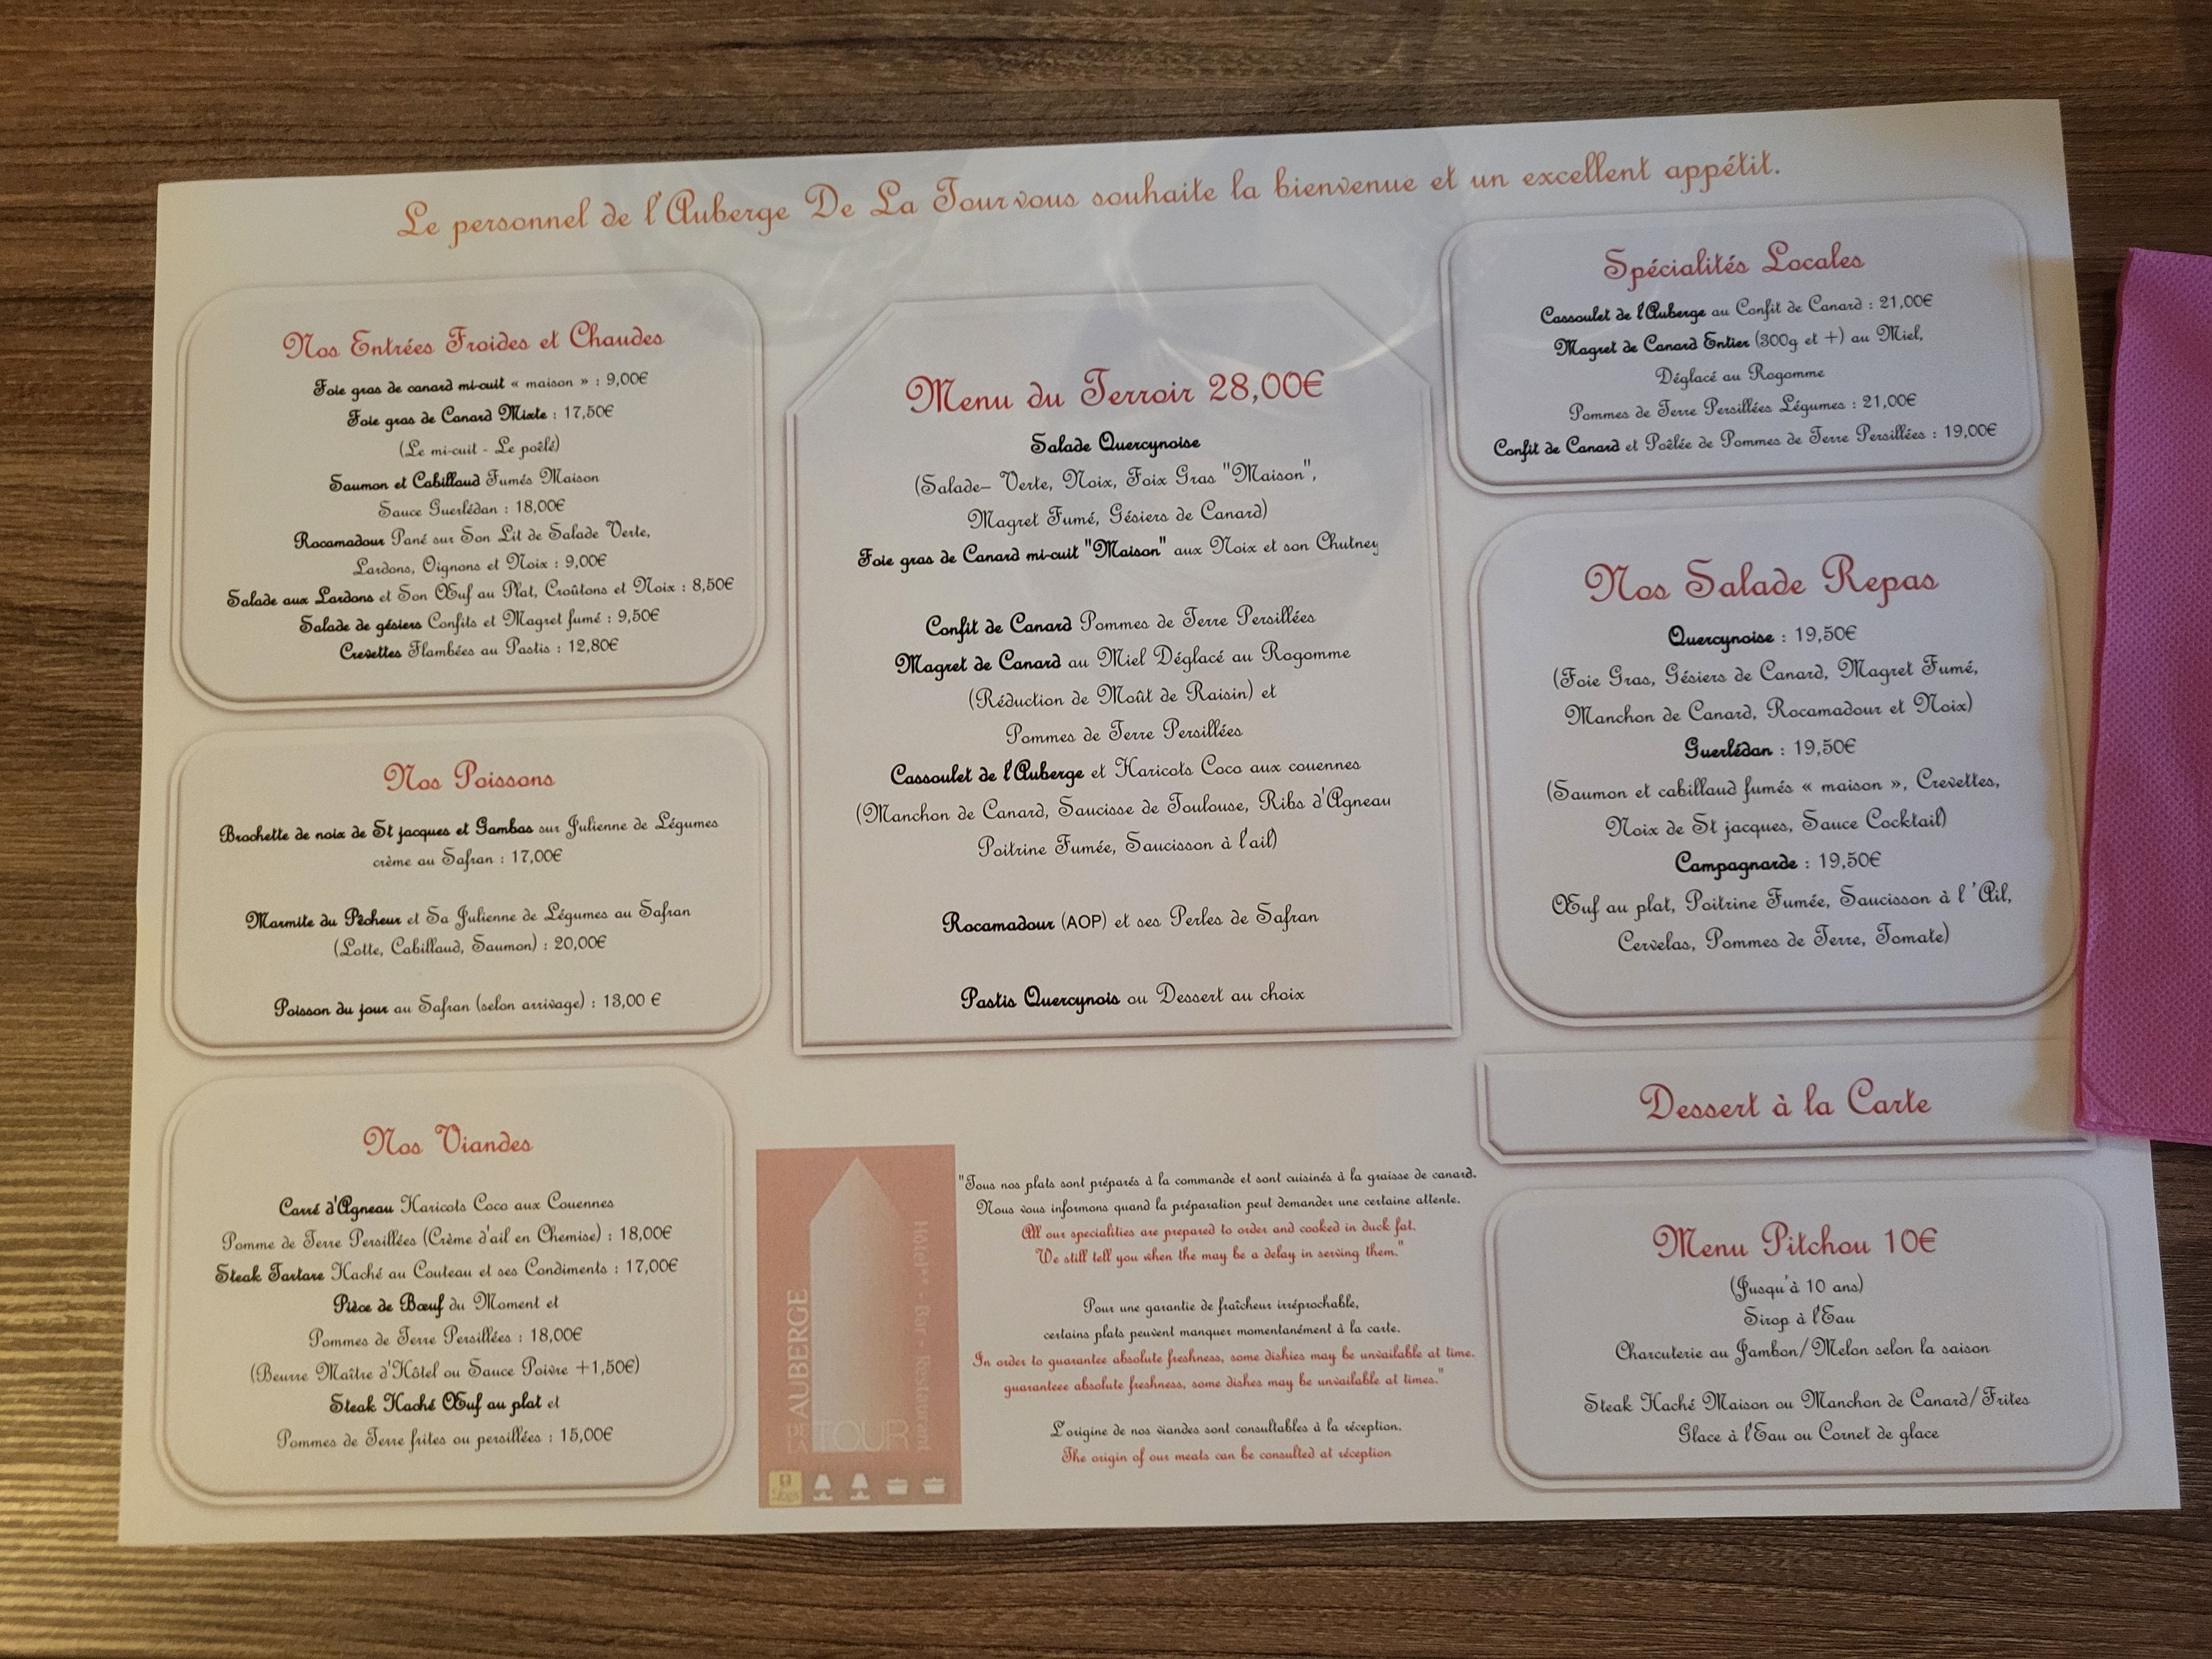 Le personnel de l'Auberge De La Tour vous souhaite la bienvenue et un excellent appétit.
Nos Entrées Froides et Chaudes
Foie gras de canard mi-cuit « maison » : 9,00€
Foie gras de Canard Mixte : 17,50€
(Le mi-cuit - Le poêlé)
Saumon et Cabillaud Fumés Maison
Sauce Guerlédan : 18,00€
Rocamadour Pané sur Son Lit de Salade Verte,
Lardons, Oignons et Noix : 9,00€
Salade aux Lardons et Son Œuf au Plat, Croûtons et Noix : 8,50€
Salade de gésiers Confits et Magret fumé : 9,50€
Crevettes Flambées au Pastis : 12,80€
Nos Poissons
Brochette de noix de St jacques et Gambas sur Julienne de Légumes
crème au Safran : 17,00€
Marmite du Pêcheur et Sa Julienne de Légumes au Safran
(Lotte, Cabillaud, Saumon) : 20,00€
Poisson du jour au Safran (selon arrivage) : 13,00 €
Nos Viandes
Carré d'Agneau Haricots Coco aux Couennes
Pomme de Terre Persillées (Crème d'ail en Chemise) : 18,00€
Steak Tartare Haché au Couteau et ses Condiments : 17,00€
Pièce de Bœuf du Moment et
Pommes de Terre Persillées : 18,00€
(Beurre Maître d'Hôtel ou Sauce Poivre +1,50€)
Steak Haché Œuf au plat et
Pommes de Terre frites ou persillées : 15,00€
Menu du Terroir 28,00€
Salade Quercynoise
(Salade– Verte, Noix, Foix Gras "Maison",
Magret Fumé, Gésiers de Canard)
Foie gras de Canard mi-cuit "Maison" aux Noix et son Chutney
Confit de Canard Pommes de Terre Persillées
Magret de Canard au Miel Déglacé au Rogomme
(Réduction de Moût de Raisin) et
Pommes de Terre Persillées
Cassoulet de l'Auberge et Haricots Coco aux couennes
(Manchon de Canard, Saucisse de Toulouse, Ribs d'Agneau
Poitrine Fumée, Saucisson à l'ail)
Rocamadour (AOP) et ses Perles de Safran
Pastis Quercynois ou Dessert au choix
AUBERGE
DE LA
TOUR
Hôtel** - Bar - Restaurant
"Tous nos plats sont préparés à la commande et sont cuisinés à la graisse de canard.
Nous vous informons quand la préparation peut demander une certaine attente.
All our specialities are prepared to order and cooked in duck fat.
We still tell you when the may be a delay in serving them."
Pour une garantie de fraîcheur irréprochable,
certains plats peuvent manquer momentanément à la carte.
In order to guarantee absolute freshness, some dishies may be unvailable at time.
guaranteee absolute freshness, some dishes may be unvailable at times."
L'origine de nos viandes sont consultables à la réception.
The origin of our meats can be consulted at réception
Spécialités Locales
Cassoulet de l'Auberge au Confit de Canard : 21,00€
Magret de Canard Entier (300g et +) au Miel,
Déglacé au Rogomme
Pommes de Terre Persillées Légumes : 21,00€
Confit de Canard et Poêlée de Pommes de Terre Persillées : 19,00€
Nos Salade Repas
Quercynoise : 19,50€
(Foie Gras, Gésiers de Canard, Magret Fumé,
Manchon de Canard, Rocamadour et Noix)
Guerlédan : 19,50€
(Saumon et cabillaud fumés « maison », Crevettes,
Noix de St jacques, Sauce Cocktail)
Campagnarde : 19,50€
Œuf au plat, Poitrine Fumée, Saucisson à l 'Ail,
Cervelas, Pommes de Terre, Tomate)
Dessert à la Carte
Menu Pitchou 10€
(Jusqu'à 10 ans)
Sirop à l'Eau
Charcuterie au Jambon/Melon selon la saison
Steak Haché Maison ou Manchon de Canard/Frites
Glace à l'Eau ou Cornet de glace